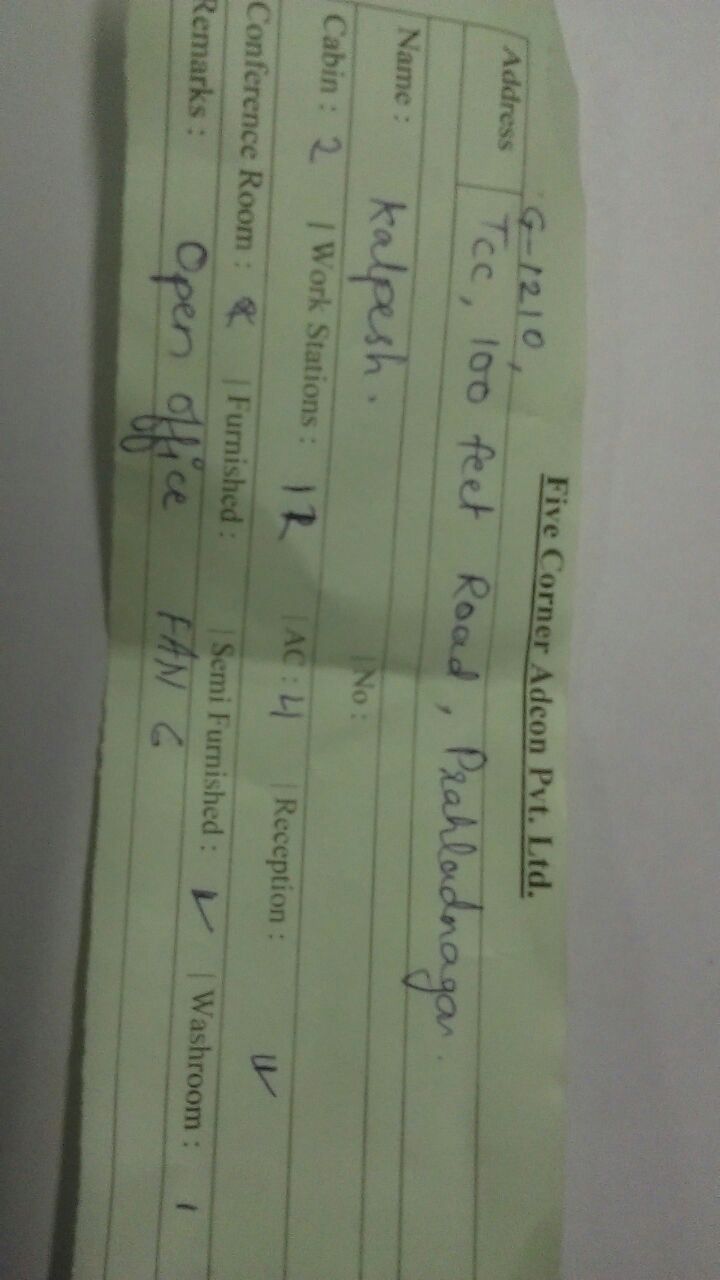 Five Corner Adcon Pvt. Ltd.
G-1210,
Address Tcc, 100 feet Road, Prahladnagar.
Name : Kalpesh. | No :
Cabin : 2 | Work Stations : 12 | AC : 4 | Reception : ✓
Conference Room : | Furnished : | Semi Furnished : ✓ | Washroom : 1
Remarks : Open office FAN 6